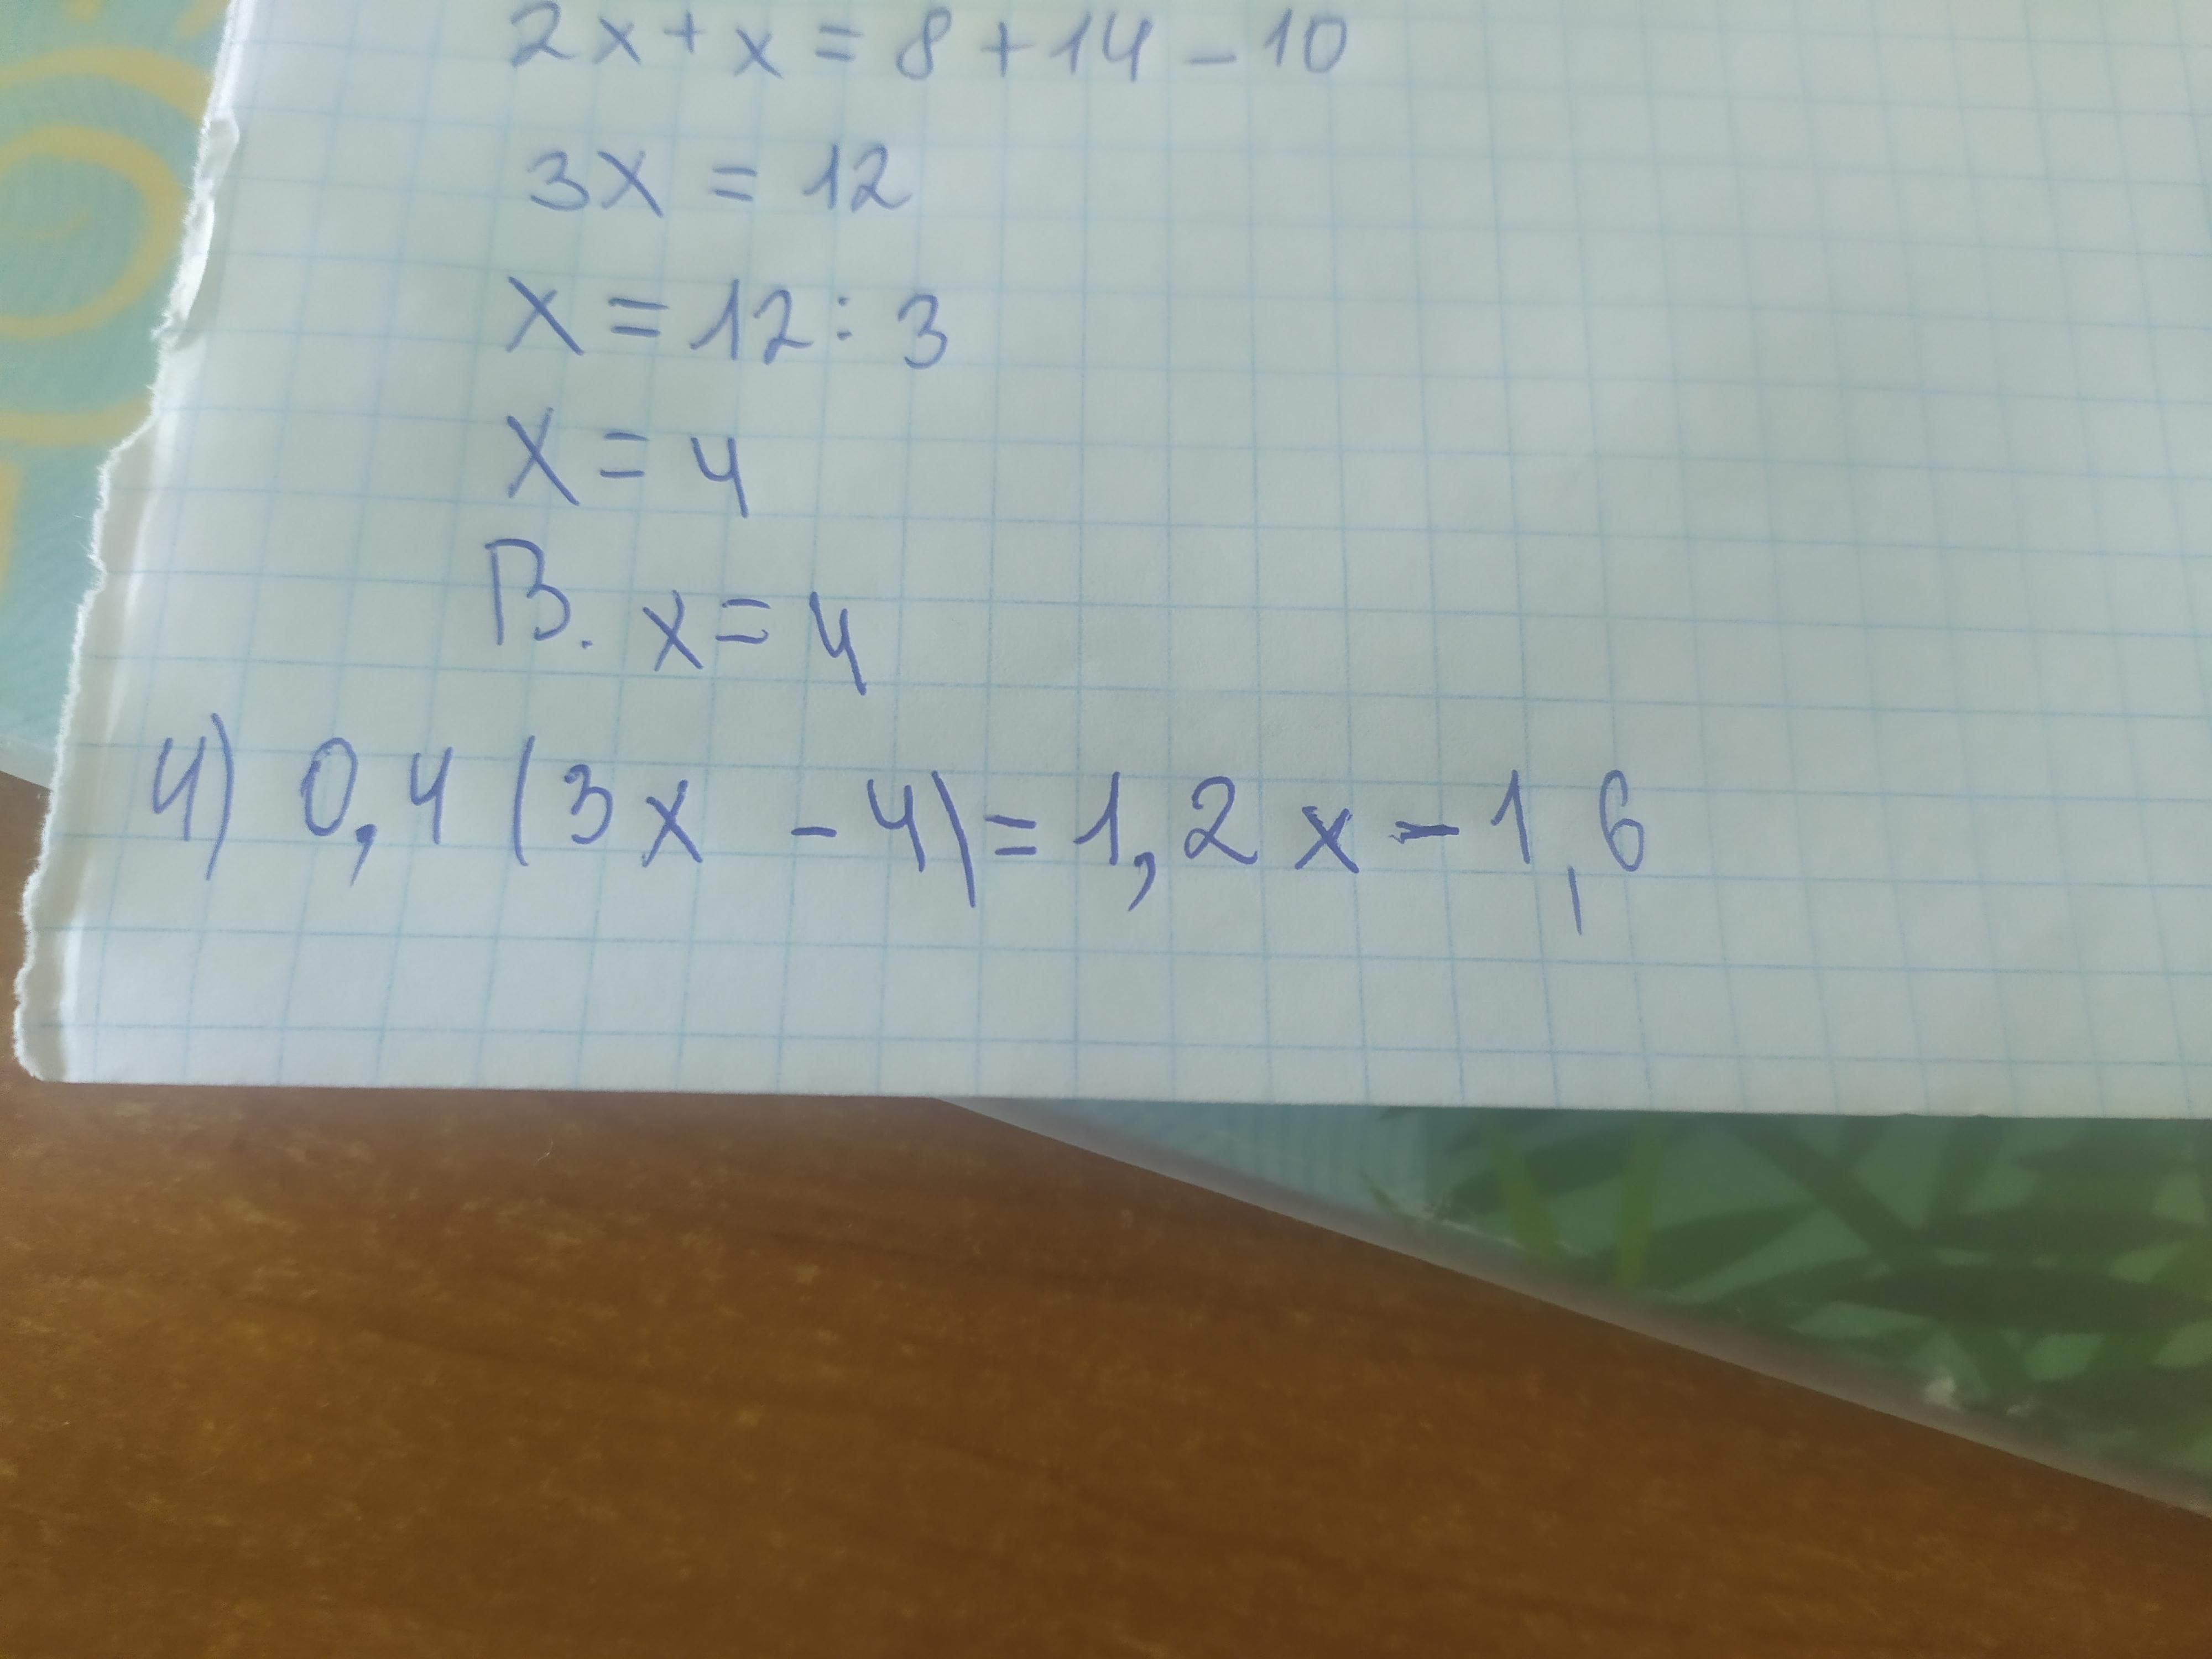 2x+x=8+14-10
3x=12
x=12:3
x=4
В. x=4
4) 0,4(3x-4)=1,2x-1,6